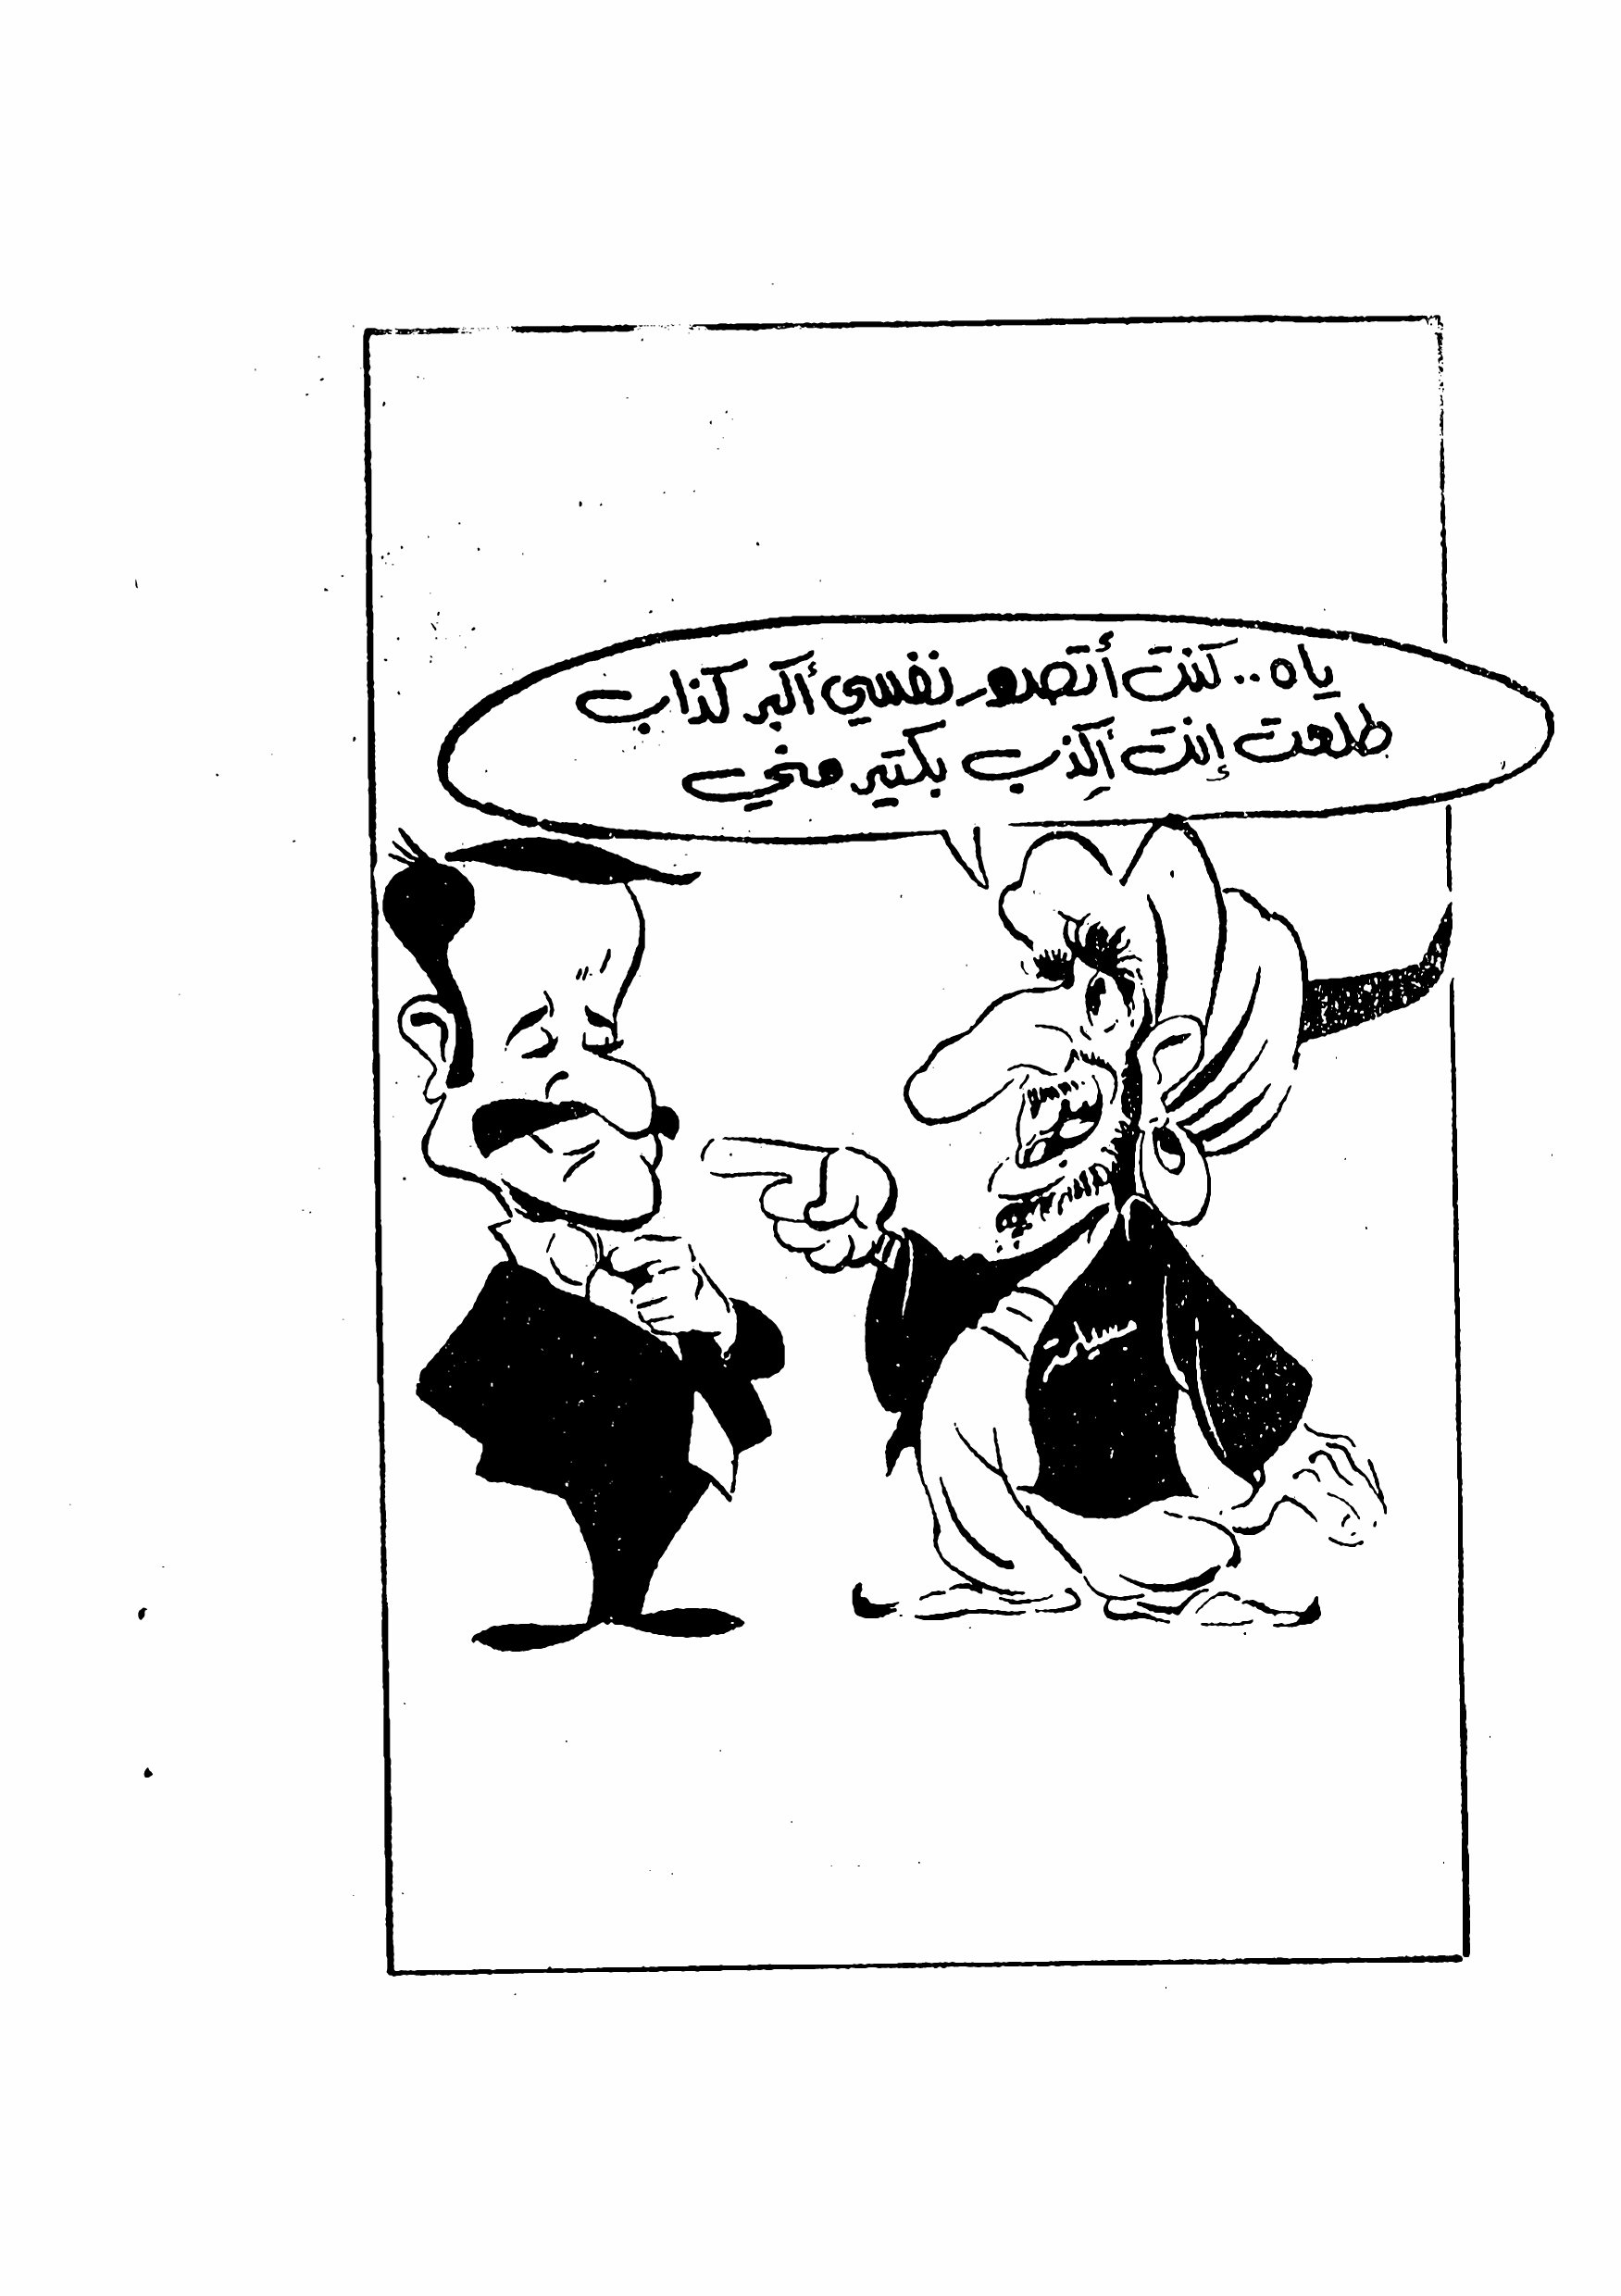 ياه.. كنت أتصور نفسي أكبر كذاب
طلعت إنت أكذب بكتير مني